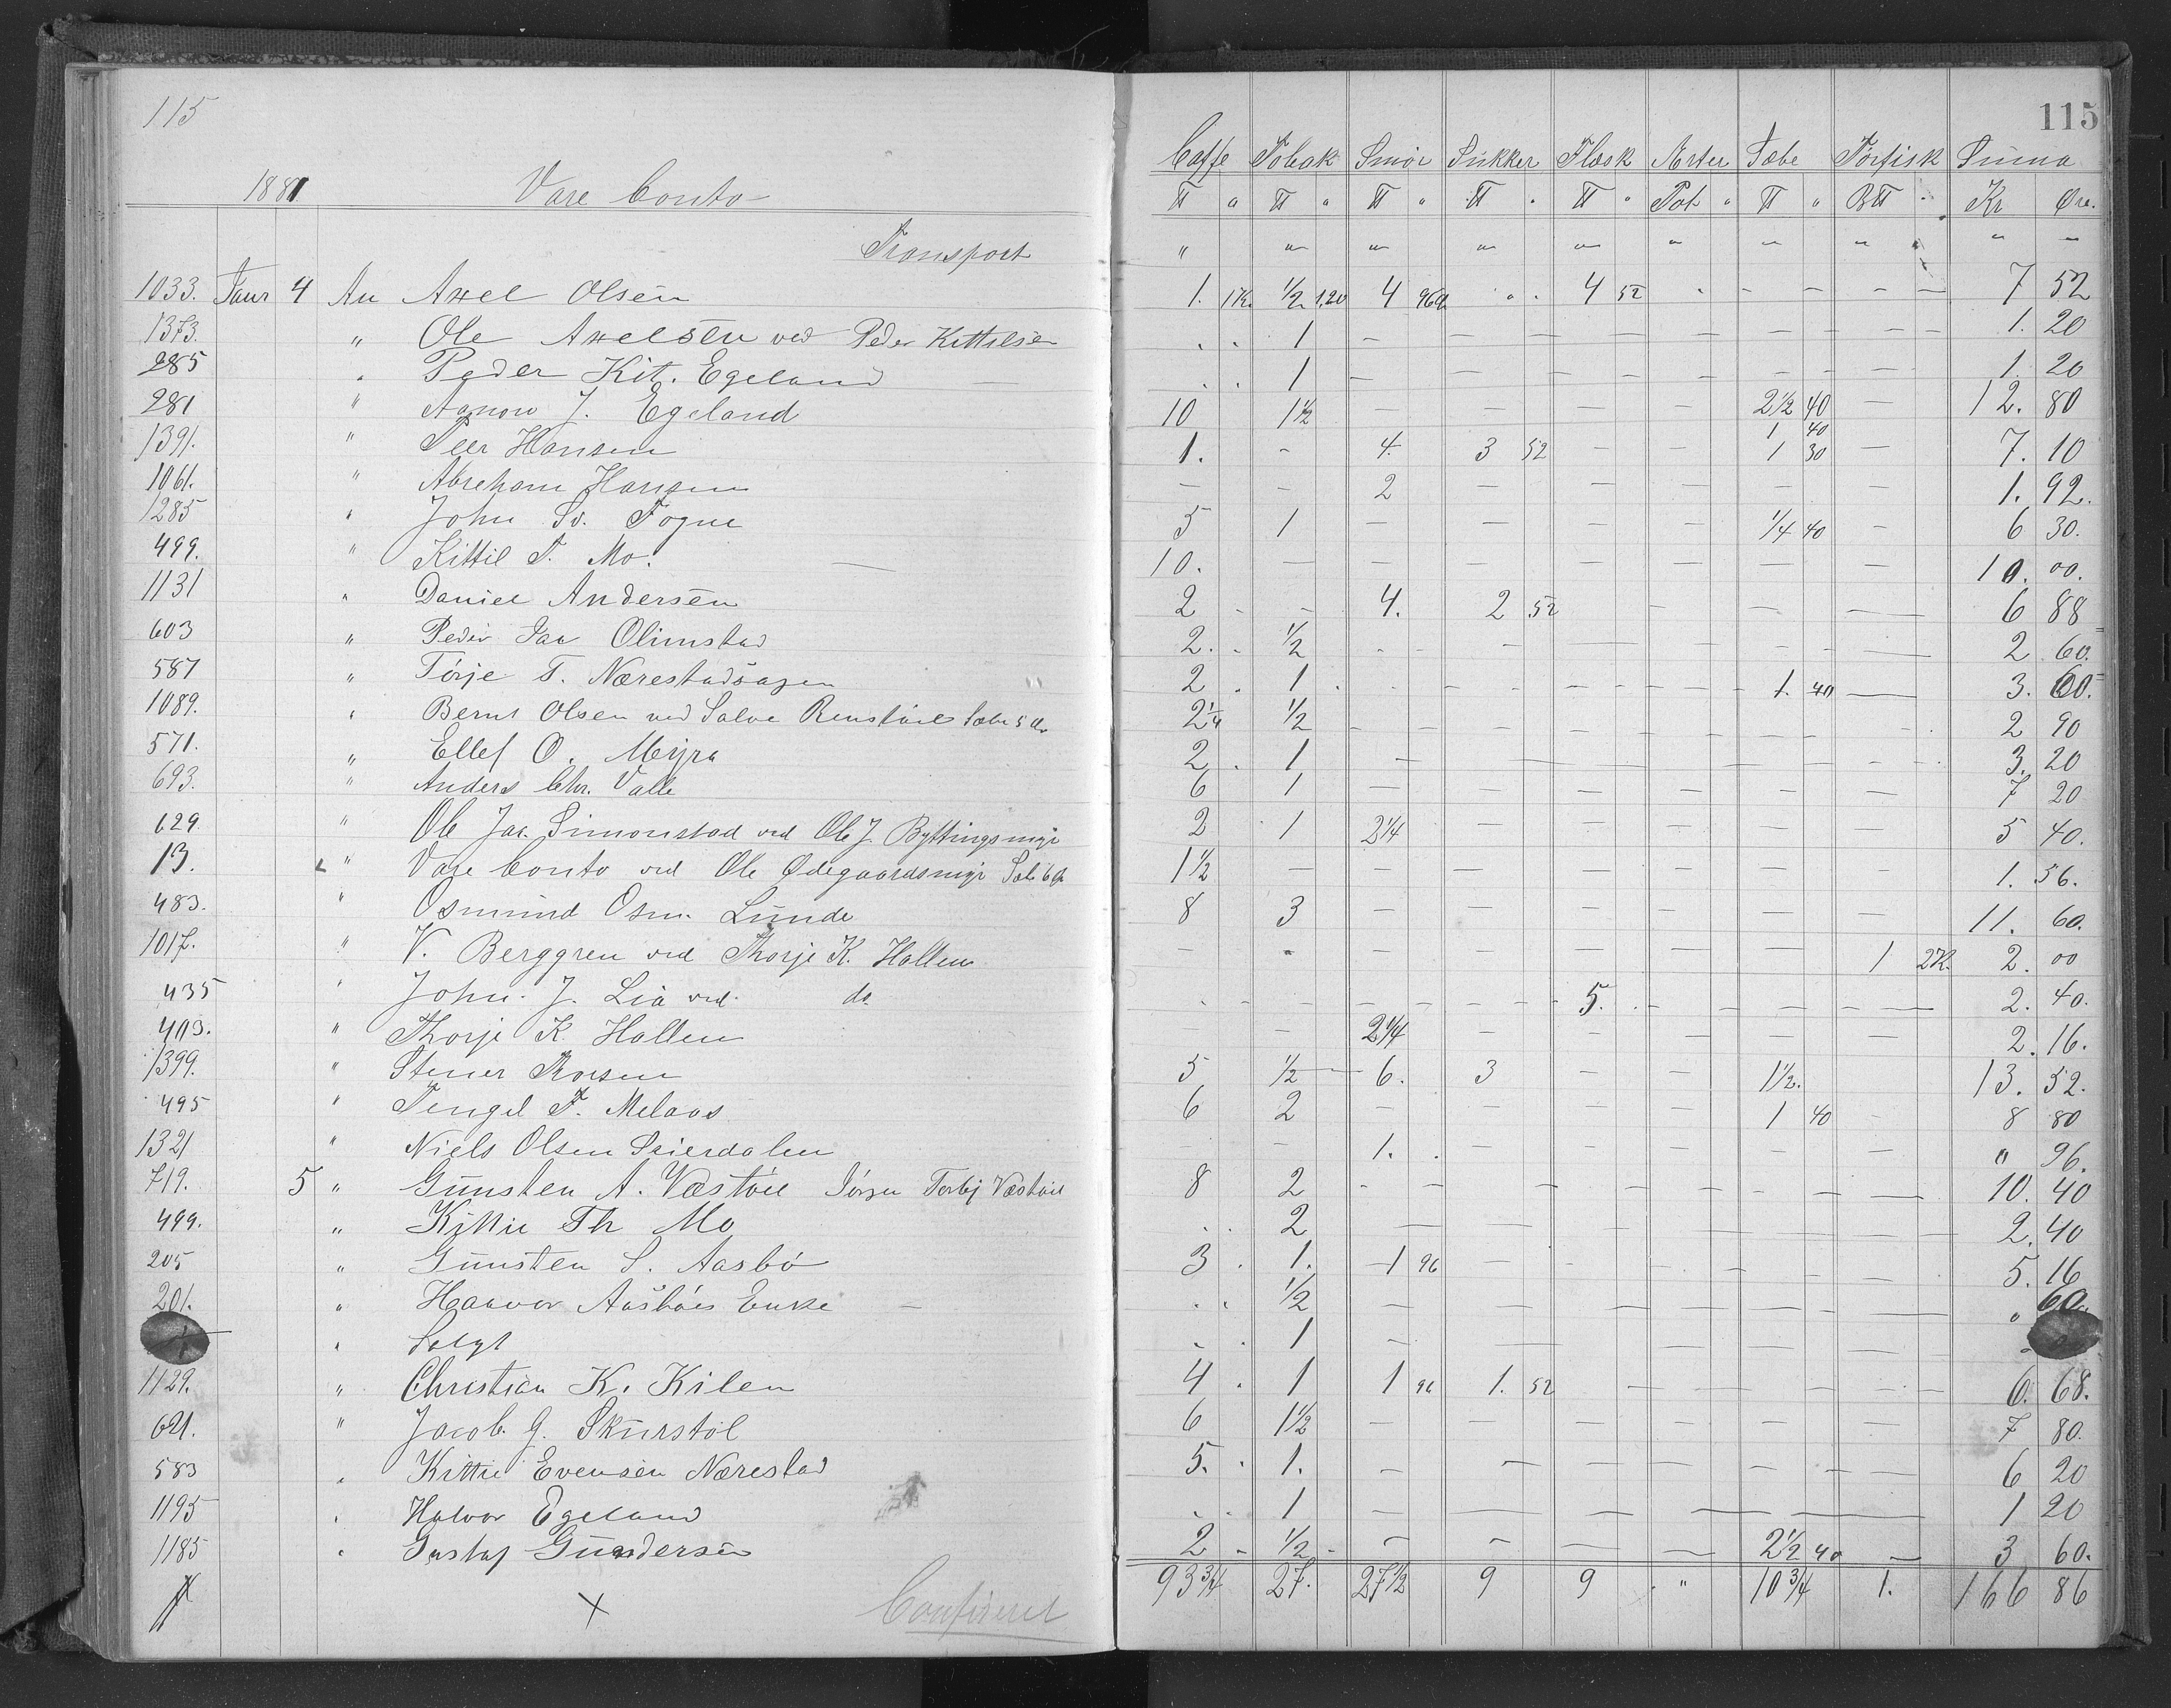 115 115
1881 Vare Conto Caffe Tobak Smör Sukker Flæsk Ærter Sæbe Törfisk Suma
℔ " ℔ " ℔ " ℔ " ℔ " Pot " ℔ " B℔ Kr Øre.
Transport " " " " " " " " " "
1033. Janr 4 An Axel Olsen 1. 1 K. 1/2 1.20 4 96 4 52 7 52
1373. " Ole Axelsen ved Peder Kittelsen 1 1. 20
285 " Peder Kit. Egeland 1 1. 20
281 " Aanon J. Egeland 10 1 1/2 2 1/2 40 12. 80
1391. " Peer Hansen 1. 4. 3 52 1 40 1 30 7. 10
1061. " Abreham Hansen 2 1. 92.
1285 " John Sv. Fogne 5 1 1/4 40 6 30.
499. " Kittil T. Mo. 10. 10. 00.
1131 " Daniel Andersen 2 4. 2 52 6 88
603 " Peder Olimstad 2. 1/2 2 60.
587 " Törje T. Nærestadsagen 2 1 1. 40 3. 60.
1089. " Bernt Olsen ved Salve 2 1/4 1/2 2 90
571. " Ellef O. Myra 2 1 3. 20
693. " Anders Chr. Valle 6 1 7 20
629 " Ole Jac. Simonstad ved Ole J. Byttingsmyr 2 1 2 1/4 5 40.
13. " Vare Conto ved Ole Ødegaardsmyr 1 1/2 1. 56.
483. " Osmund Osm. Lunde 8 3 11. 60.
1017. " V. Berggren ved Thorje K. Hallen 1 2 K. 2. 00
435 " John. J. Lia ved do 5. 2. 40.
403. " Thorje K. Hallen 2 1/4 2. 16.
1399. " Stener 5 1/2 6. 3 1 1/2. 13. 52.
495 " Tengel T. Melaas 6 2 1 40 8 80
1321 " Niels Olsen Seierdalen 1. " 96.
719. 5 " Gunsten A. Væstöl 8 2 10. 40
499. " Kittil Th Mo 2 2. 40
205 " Gunsten S. Aasbö 3 1. 1 96 5. 16
201. " Haavor Aasböes Enke 1/2 " 60.
" Solgt 1
1129. " Christian K. Kilen 4 1 1 96 1. 52 6. 68.
621. " Jacob. G. Skurstöl 6 1 1/2 7 80.
583 " Kittil Evensen Nærestad 5. 1. 6 20
1195 " Halvor Egeland 1 1 20
1185 " Gustaf Gundersen 2 1/2 2 1/2 40 3 60.
93 3/4 27. 27 1/2 9 9 " 10 3/4 1. 166 86
Confereret